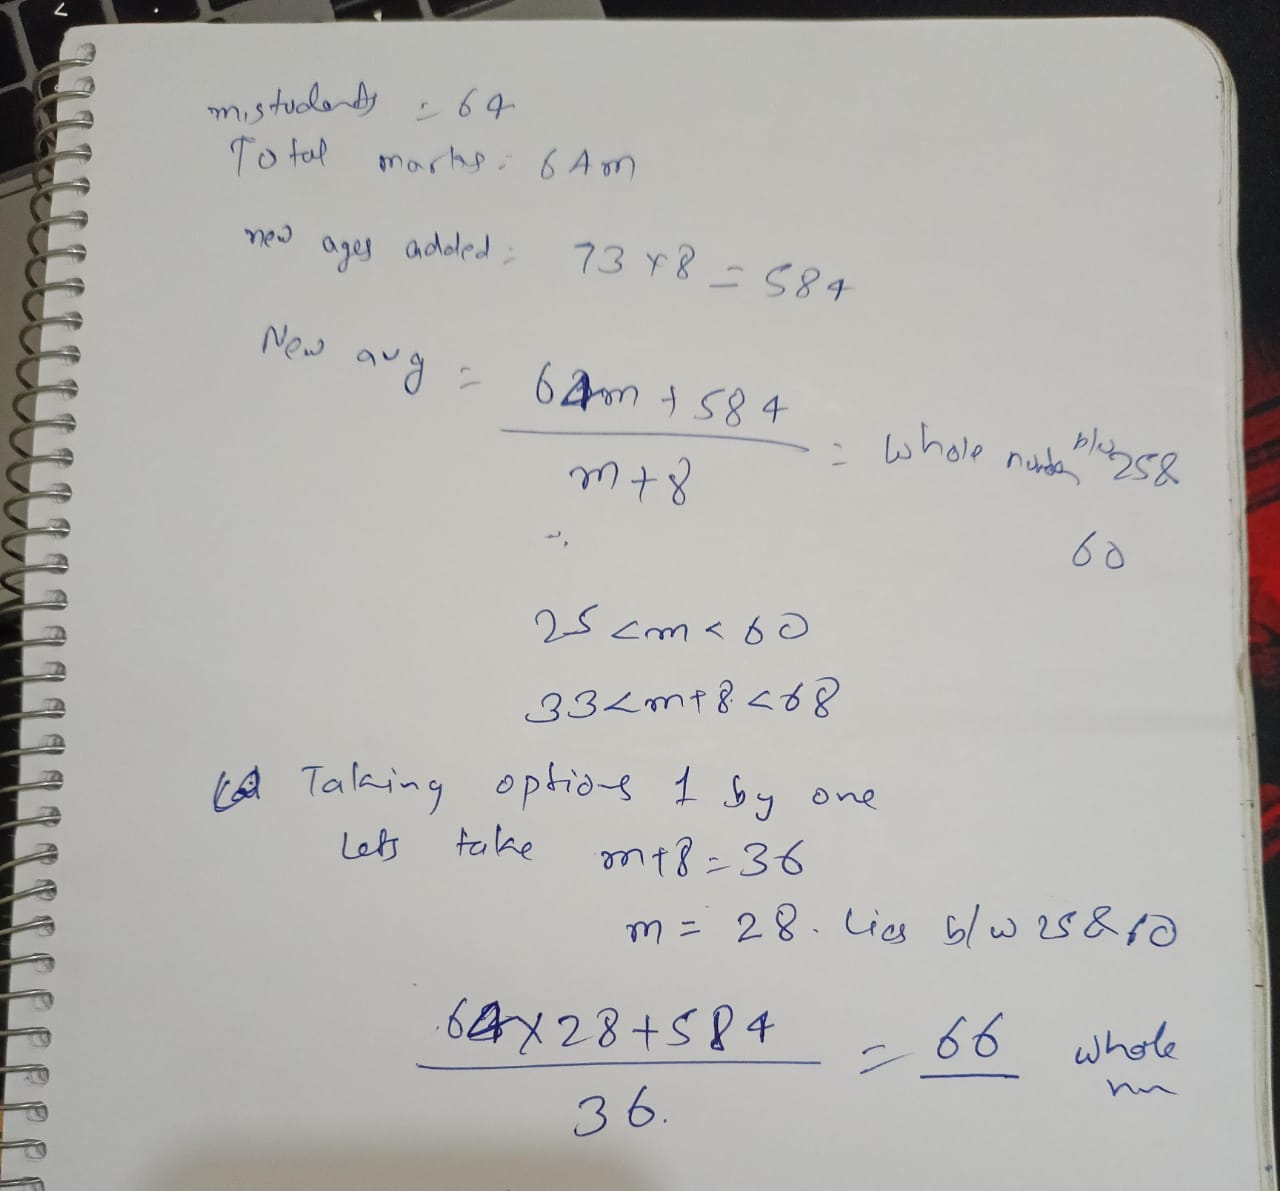 m, students = 64
Total marks = 64m
new ages added = 73 × 8 = 584
New avg = 64m + 584 / m + 8 = whole number b/w 25 & 60
∴
25 < m < 60
33 < m+8 < 68
Taking options 1 by one
Lets take m+8 = 36
m = 28. Lies b/w 25 & 60
64 × 28 + 584 / 36. = 66 whole